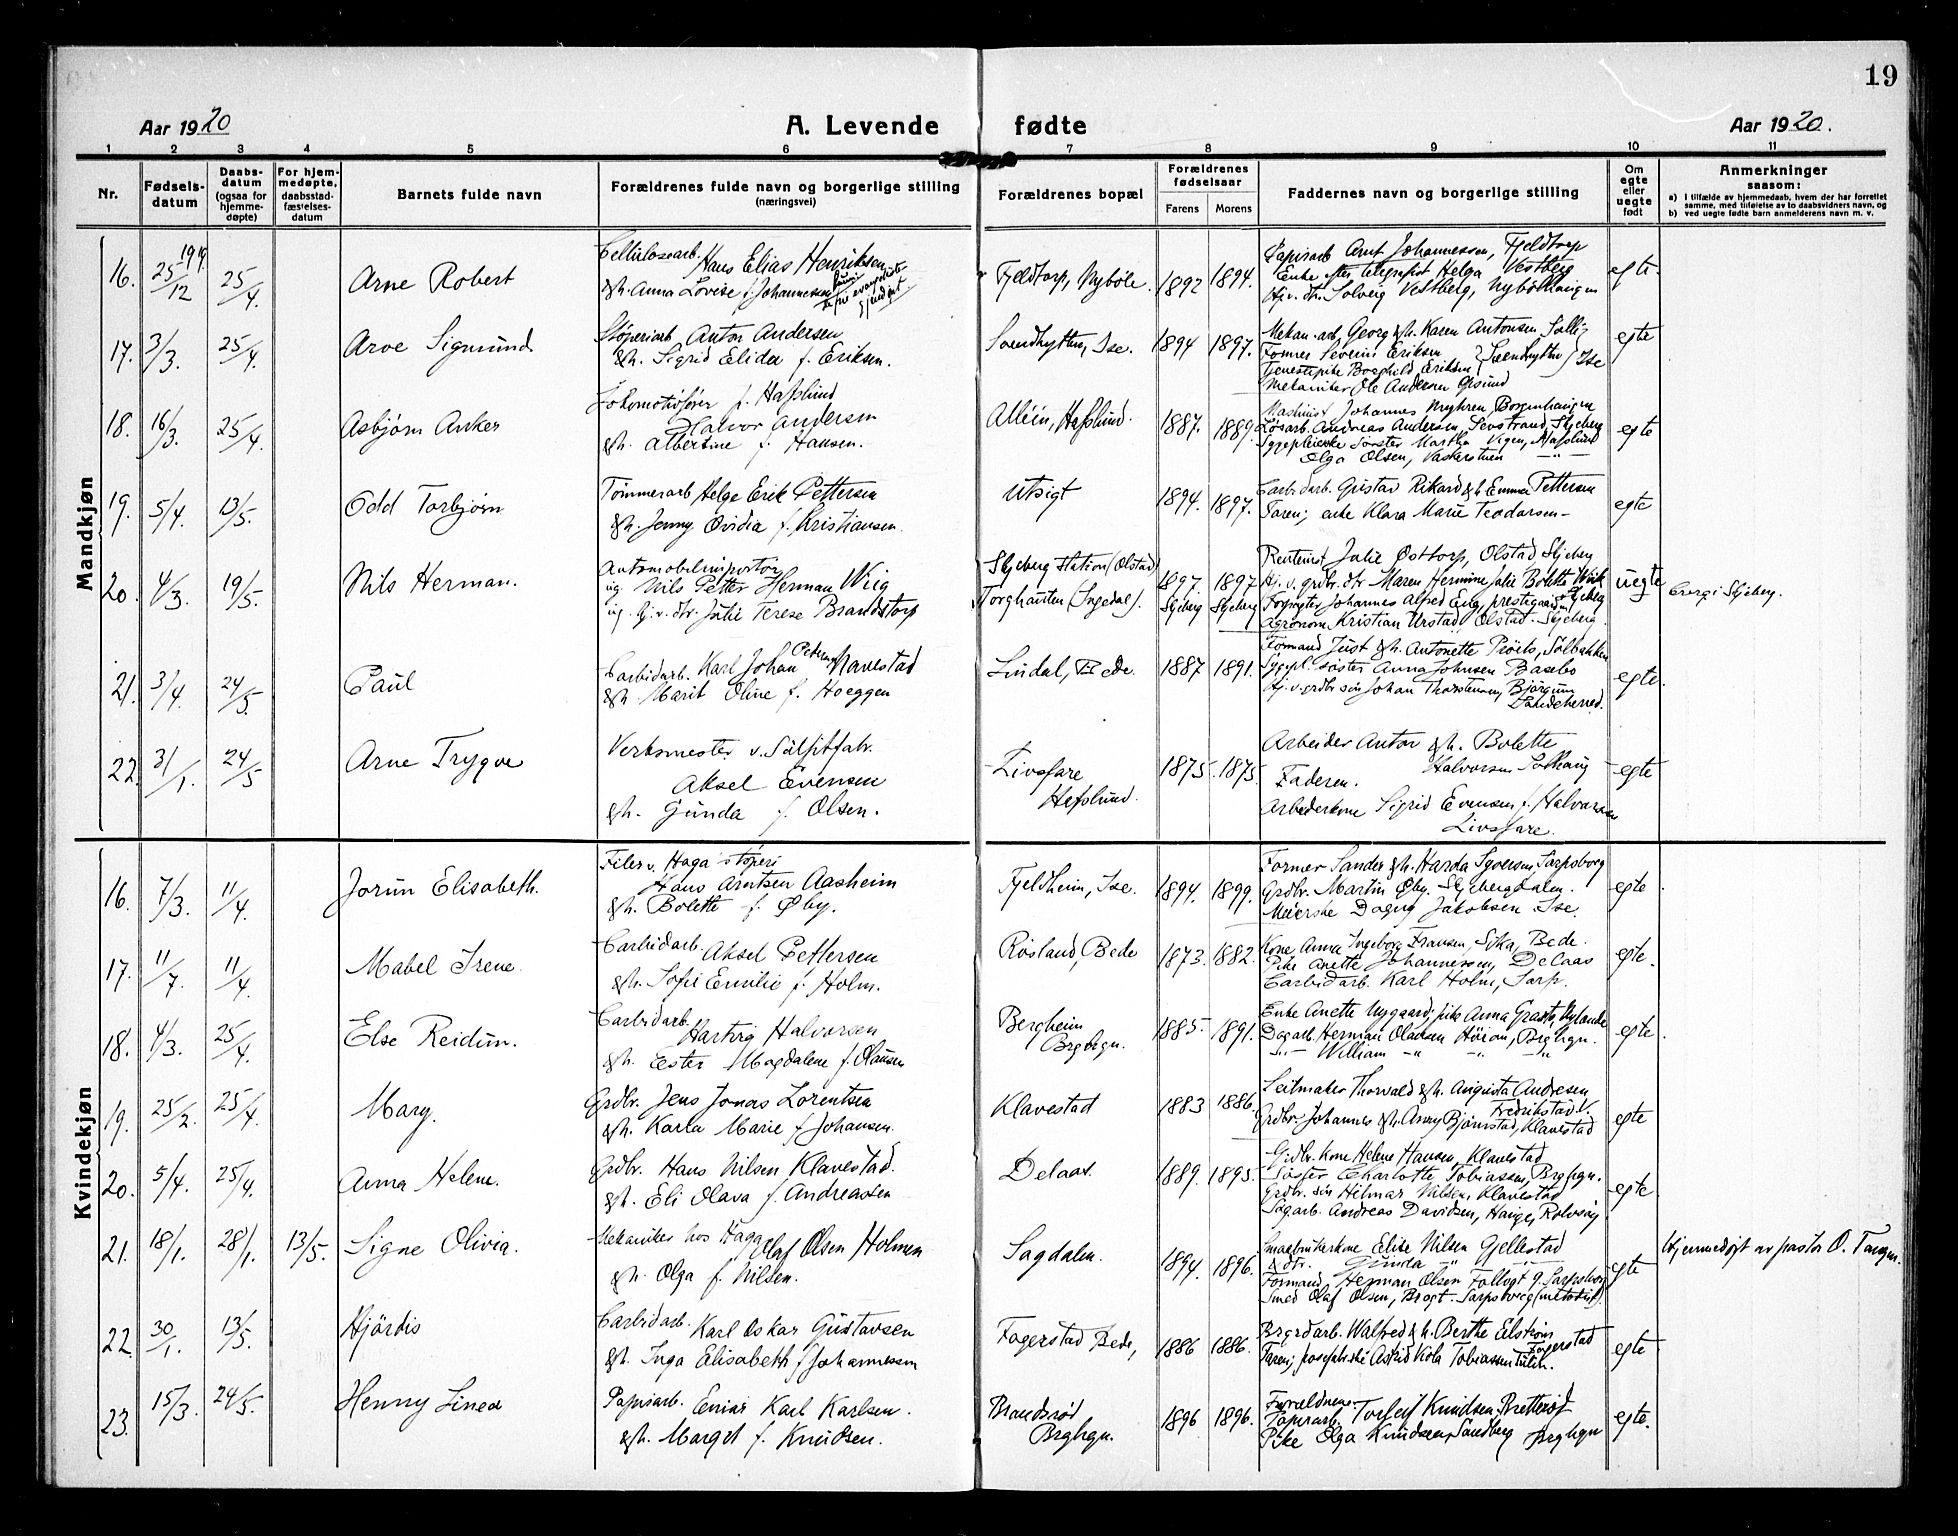 19
Aar 1920
A. Levende fødte
Aar 1920.
1 2 3 4 5 6 7 8 9 10 11
Nr.
Fødselsdatum
Daabsdatum (ogsaa for hjemmedøpte)
For hjemmedøpte, daabsstadfæstelsesdatum
Barnets fulde navn
Forældrenes fulde navn og borgerlige stilling (næringsvei)
Forældrenes bopæl
Forældrenes fødselsaar
Farens
Morens
Faddernes navn og borgerlige stilling
Om egte eller uegte født
Anmerkninger
saasom:
a) I tilfælde av hjemmedaab, hvem der har forrettet samme, med tilføielse av to daabsvidners navn, og
b) ved uegte fødte barn anmelderens navn m. v.
Mandkjøn
16. 25/12 1919 25/4. Arne Robert
Cellulosearb. Hans Elias Henriksen
&h. Anna Lovise f. Johannessen
Fjeldtorp, Nyböle. 1892 1894.
Papirarb. Arnt Johannessen, Fjeldtorp
Enke efter telegrafist Helga Vestberg
Hjv. dtr. Solveig Vestberg, Nybölhaugen
egte.
17. 3/3. 25/4. Arve Sigmund
Støperiarb. Anton Andersen
&h. Sigrid Elida f. Eriksen.
Soendhytten, Ise. 1894 1897.
Mekan. arb. Georg &h. Karen Antonsen Solli
Former Severin Eriksen
Tjenestepike Borghild Eriksen } Soendhytten } Ise
Mekaniker Ole Andersen Gisund
egte
18. 16/3. 25/4. Asbjørn Anker
Lokomotivfører f. Hafslund
Halvor Andersen
&h. Albertine f. Hansen.
Alléen, Hafslund. 1887. 1889.
Maskinist Johannes Myhren, Borgenhaugen
Løsarb. Andreas Andersen, Sevstrand, Skjeberg
Sygepleierske søster Martha Vigen, Hafslund
Olga Olsen, Vaskerstuen —"—
egte
19. 5/4. 13/5. Odd Torbjørn
Tømmerarb Helge Erik Pettersen
&h. Jenny Ovidia f. Kristiansen.
Utsigt 1894. 1897.
Carbidarb. Gustav Rikard &h Emma Pettersen
Faren; enke Klara Marie Teodorsen—
egte
20. 4/3. 19/5. Nils Herman.
Automobilimportør
ug. Nils Petter Herman Wiig
ug. Gj.v. dtr. Julie Terese Brandstorp
Skjeberg station (Olstad)
Torghaugen (Ingedal).
1897. Skjeberg 1897 Skjeberg
Rentenist Julie Østtorp, Olstad Skjeberg
Hj. v. grdbr. dtr Maren Hermine Julie Bolette Wiik
Forpagter Johannes Alfred Eng, prestegaarden, Skjeberg
Agronom Kristian Urstad Olstad - Skjeberg.
uegte
21. 3/4. 24/5. Paul
Carbidarb. Karl Johan Petersen Navestad
&h. Marit Oline f. Hoeggen
Lindal, Bede. 1887 1891.
Formand Just &h. Antonette Prøis, Solbakken
Sygepl. søster Anna Johnsen Basebo
Hj. v. grdbr søn Johan Thorstensen, Bjørgum
Sandeherred.
egte.
22. 31/1. 24/5 Arne Trygve
Verksmester v. Salpitfabr.
Aksel Evensen
&h. Gunda f. Olsen.
Livsfare
Hafslund. 1875. 1875
Arbeider Anton &h. Bolette
Halvorsen Solhaug
Faderen.
Arbeiderkone Sigrid Evensen f. Halvorsen
Livsfare.
egte
Kvindekjøn
16. 7/3. 11/4. Jorun Elisabeth.
Filer v. Haga støperi
Hans Arntsen Aasheim
&h. Bolette f. Øby.
Fjeldheim, Ise. 1894. 1899.
Former Sander &h. Harda Syversen, Sarpsborg
Grdbr. Martin Øby. Skjebergdalen.
Meierske Dagny Jakobsen Ise.
egte
17. 11/7. 11/4. Mabel Irene.
Carbidarb. Aksel Pettersen
&h. Sofie Emilie f. Holm.
Røsland, Bede 1873. 1882.
Kone Anna Ingeborg Fransen, Sika, Bede.
Pike Anette Johannessen, Delaas
Carbidarb. Karl Holm, Sarp.
egte.
18. 4/3. 25/4. Else Reidun.
Carbidarb.
Hartvig Halvorsen
&h. Ester Magdalene f. Hansen
Bergheim
Brghgn. 1885. 1891.
Enke Anette Nygaard; pike Anna Nylande
Dagarb. Herman Olausen Høiom, Brghgn.
—"— William —"— —"— —"—
egte.
19. 25/2. 25/4. Mary.
Grdbr. Jens Jonas Lorentsen
&h. Karla Marie f Johansen.
Klavestad 1883 1886.
Seilmaker Thorvald &h. Augusta Andresen
Fredrikstad.
Grdbr. Johannes &h. Anny Bjørnstad, Klavestad
egte
20. 5/4. 25/4. Anna Helene.
Grdbr. Hans Nilsen Klavestad.
&h. Eli Olava f. Andreassen
Delaas. 1889. 1895.
Grdbr. kone Helene Hansen, Klavestad
Søster Charlotte Tobiassen, Brghgn.
Grdbr. søn Hilmar Nilsen, Klavestad
Sagarb. Andreas Davidsen, Hauge, Rolvsøy
egte
21. 18/1. 28/1. 13/5. Signe Olivia.
Mekaniker hos Haga Olaf Olsen Holmen
&h. Olga f. Nilsen.
Sagdalen. 1894. 1896.
Smaabrukerkone Elise Nilsen Gjellestad
& dtr. Gunda —"— —"—
Formand Herman Olsen Sarpsborg
Smed Olaf Olsen, Brogt. Sarpsborg (metodist).
egte
Hjemmedøpt av pastor O. Tangen.
22. 30/1. 13/5. Hjördis
Carbidarb. Karl Oskar Gustavsen
&h. Inga Elisabeth f Johannessen
Fagerstad Bede, 1886 1886.
Walfred &h. Berthe Elstrøm
Fagerstad
Faren;
egte
23. 15/3. 24/5. Henny Linea
Papirarb. Einar Karl Karlsen.
&h. Marget f. Knudsen.
Brandsrød
Brghgn. 1896 1896.
Forældrene.
Papirarb. Torleif Knudsen
Pike Olga Knudsen, Sandberg Brghgn
egte.